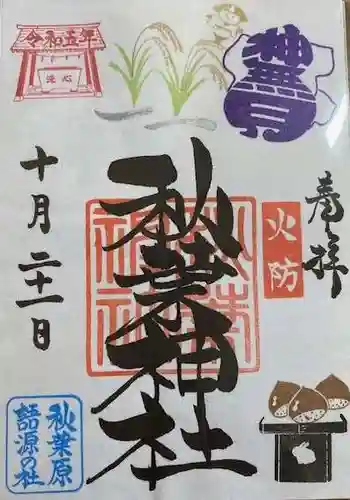 令和五年
洗心
神無月
奉拝
火防
秋葉神社
秋葉神社
十月二十一日
秋葉原
語源の社